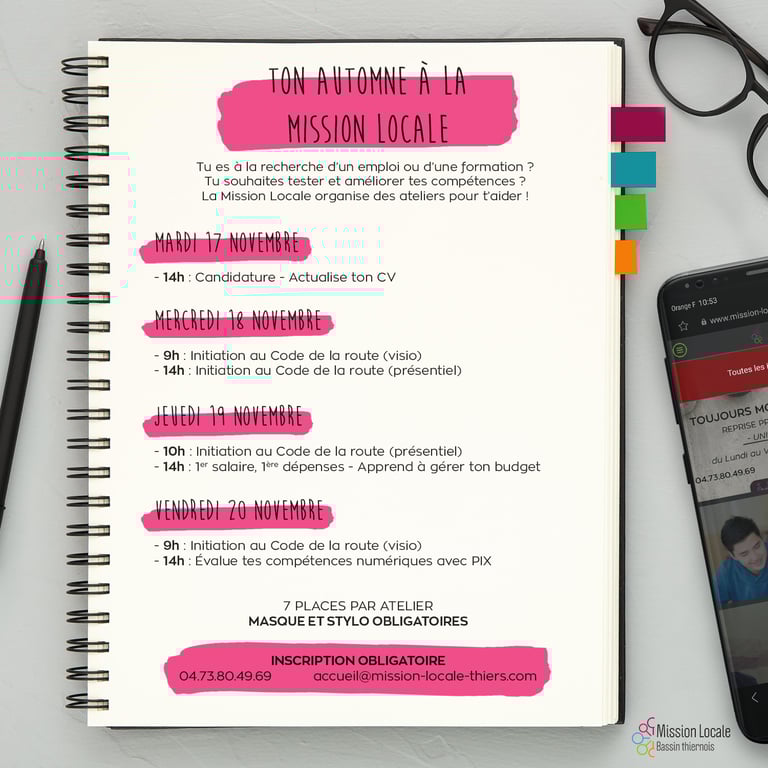 TON AUTOMNE À LA
MISSION LOCALE
Tu es à la recherche d'un emploi ou d'une formation ?
Tu souhaites tester et améliorer tes compétences ?
La Mission Locale organise des ateliers pour t'aider !
MARDI 17 NOVEMBRE
- 14h : Candidature - Actualise ton CV
MERCREDI 18 NOVEMBRE
- 9h : Initiation au Code de la route (visio)
- 14h : Initiation au Code de la route (présentiel)
JEUEDI 19 NOVEMBRE
- 10h : Initiation au Code de la route (présentiel)
- 14h : 1er salaire, 1ère dépenses - Apprend à gérer ton budget
VENDREDI 20 NOVEMBRE
- 9h : Initiation au Code de la route (visio)
- 14h : Évalue tes compétences numériques avec PIX
7 PLACES PAR ATELIER
MASQUE ET STYLO OBLIGATOIRES
INSCRIPTION OBLIGATOIRE
04.73.80.49.69 accueil@mission-locale-thiers.com
Orange F 10:53
www.mission-lo
Toutes les
TOUJOURS MO
REPRISE PR
- UNI
du Lundi au V
04.73.80.49.69
Mission Locale
Bassin thiernois